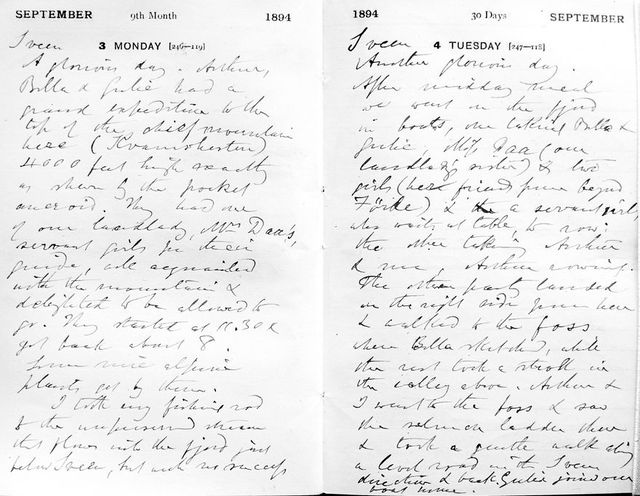 SEPTEMBER 9th Month 1894
3 MONDAY [246—119]
Sveen
A glorious day. Arthur,
Billa & Gulie had a
grand expedition to the
top of the chief mountain
here (Kvamshesten)
4000 feet high exactly
as shewn by the pocket
aneroid. They had one
of our landlady, Mrs Daa's,
servant girls for their
guide, well acquainted
with the mountain &
delighted to be allowed to
go. They started at 11.30 &
got back about 8.
Some nice alpine
plants got by them.
I took my fishing rod
to the unpreserved stream
that flows into the fjord just
below Sveen, but with no success
1894 30 Days SEPTEMBER
4 TUESDAY [247—118]
Sveen
Another glorious day.
After midday meal
we went on the fjord
in boats, one taking Billa &
Gulie, Miss Daa (our
landlady's sister) & two
girls (her friends from beyond
Förde) & a servant girl
who waits at table to row:
the other taking Arthur
& me, Arthur rowing.
The other party landed
on the right side from here
& walked to the foss
where Billa sketched, while
the rest took a stroll in
the valley above. Arthur &
I went to the foss & saw
the salmon ladder there
& took a gentle walk along
a level road in the Sveen
direction & back. Gulie joined our
boat home.